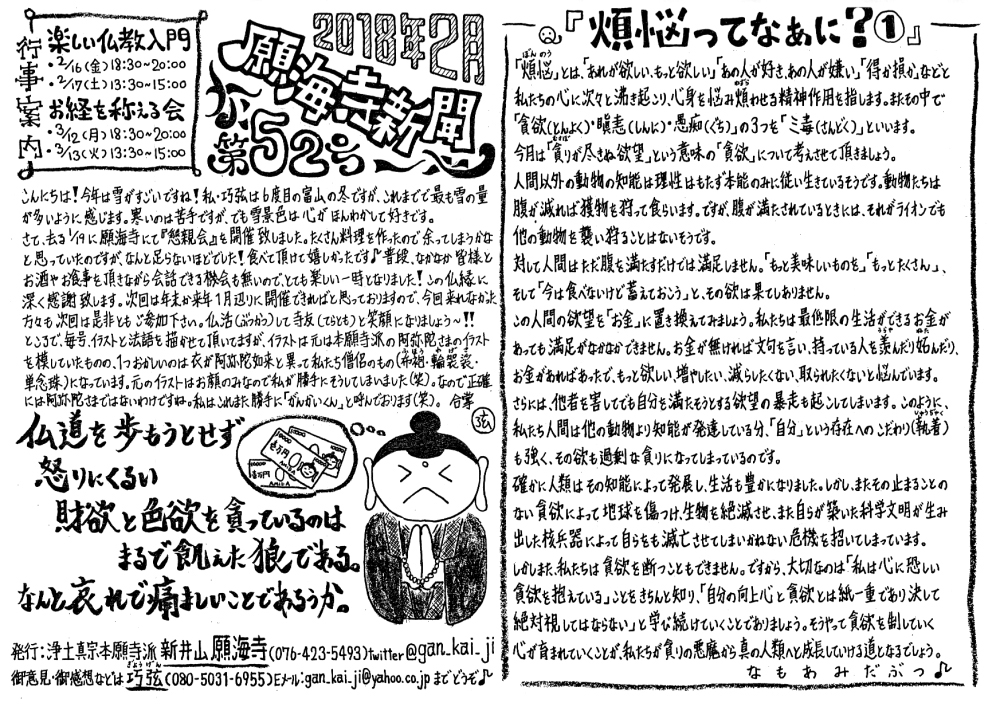 行事案内
楽しい仏教入門
・2/16(金)18:30~20:00
・2/17(土)13:30~15:00
お経を称える会
・3/12(月)18:30~20:00
・3/13(火)13:30~15:00
2018年2月
願海寺新聞
第52号
こんにちは!今年は雪がすごいですね!私・巧弦は6度目の富山の冬ですが、これまでで最も雪の量
が多いように感じます。寒いのは苦手ですが、でも雪景色は心がほんわかして好きです。
さて、去る1/19に願海寺にて『懇親会』を開催致しました。たくさん料理を作ったので余ってしまうかな
と思っていたのですが、なんと足らないほどでした!食べて頂けて嬉しかったです♪普段、なかなか皆様と
お酒やお食事を頂きながら会話できる機会も無いので、とても楽しい一時となりました!この仏縁に
深く感謝致します。次回は年末か来年1月辺りに開催できればと思っておりますので、今回来れなかった
方々も次回は是非ともご参加下さい。仏活(ぶつかつ)して寺友(てらとも)と笑顔になりましょう~!!
ところで、毎号、イラストと法語を描かせて頂いてますが、イラストは元は本願寺派の阿弥陀さまのイラスト
を模していたものの、1つおかしいのは衣が阿弥陀如来と異って私たち僧侶のもの(布袍・輪袈裟・
単念珠)になっています。元のイラストはお顔のみなので私が勝手にそうしてしまいました(笑)。なので正確
には阿弥陀さまではないわけですね。私はこれまた勝手に「がんかいくん」と呼んでおります(笑)。 合掌
弦
仏道を歩もうとせず
怒りにくるい
財欲と色欲を貪っているのは
まるで飢えた狼である。
なんと哀れで痛ましいことであろうか。
壱万円
壱万円
発行:浄土真宗本願寺派 新井山 願海寺(076-423-5493)twitter@gan_kai_ji
御意見・御感想などは巧弦(きょうげん)(080-5031-6955)Eメール:gan_kai_ji@yahoo.co.jpまでどうぞ♪
『煩悩ってなぁに?①』
「煩悩(ぼんのう)」とは、「あれが欲しい、もっと欲しい」「あの人が好き、あの人が嫌い」「得か損か」などと
私たちの心に次々と沸き起こり、心身を悩み煩わせる精神作用を指します。またその中で
「貪欲(とんよく)・瞋恚(しんに)・愚痴(ぐち)」の3つを「三毒(さんどく)」といいます。
今月は「貪りが尽きぬ欲望」という意味の「貪欲」について考えさせて頂きましょう。
人間以外の動物の知能は理性はもたず本能のみに従い生きているそうです。動物たちは
腹が減れば獲物を狩って食らいます。ですが、腹が満たされているときには、それがライオンでも
他の動物を襲い狩ることはないそうです。
対して人間はただ腹を満たすだけでは満足しません。「もっと美味しいものを」「もっとたくさん」、
そして「今は食べないけど蓄えておこう」と、その欲は果てしありません。
この人間の欲望を「お金」に置き換えてみましょう。私たちは最低限の生活ができるお金が
あっても満足がなかなかできません。お金が無ければ文句を言い、持っている人を羨んだり妬んだり、
お金があればあったで、もっと欲しい、増やしたい、減らしたくない、取られたくないと悩んでいます。
さらには、他者を害してでも自分を満たそうとする欲望の暴走も起こしてしまいます。このように、
私たち人間は他の動物より知能が発達している分、「自分」という存在へのこだわり(執着)
も強く、その欲も過剰な貪りになってしまっているのです。
確かに人類はその知能によって発展し、生活も豊かになりました。しかし、またその止まることの
ない貪欲によって地球を傷つけ、生物を絶滅させ、また自らが築いた科学文明が生み
出した核兵器によって自らをも滅亡させてしまいかねない危機を招いてしまっています。
しかしまた、私たちは貪欲を断つこともできません。ですから、大切なのは「私は心に恐しい
貪欲を抱えている」ことをきちんと知り、「自分の向上心と貪欲とは紙一重であり決して
絶対視してはならない」と学び続けていくことでありましょう。そうやって貪欲を制していく
心が育まれていくことが、私たちが貪りの悪魔から真の人類へと成長していける道となるでしょう。
なもあみだぶつ♪